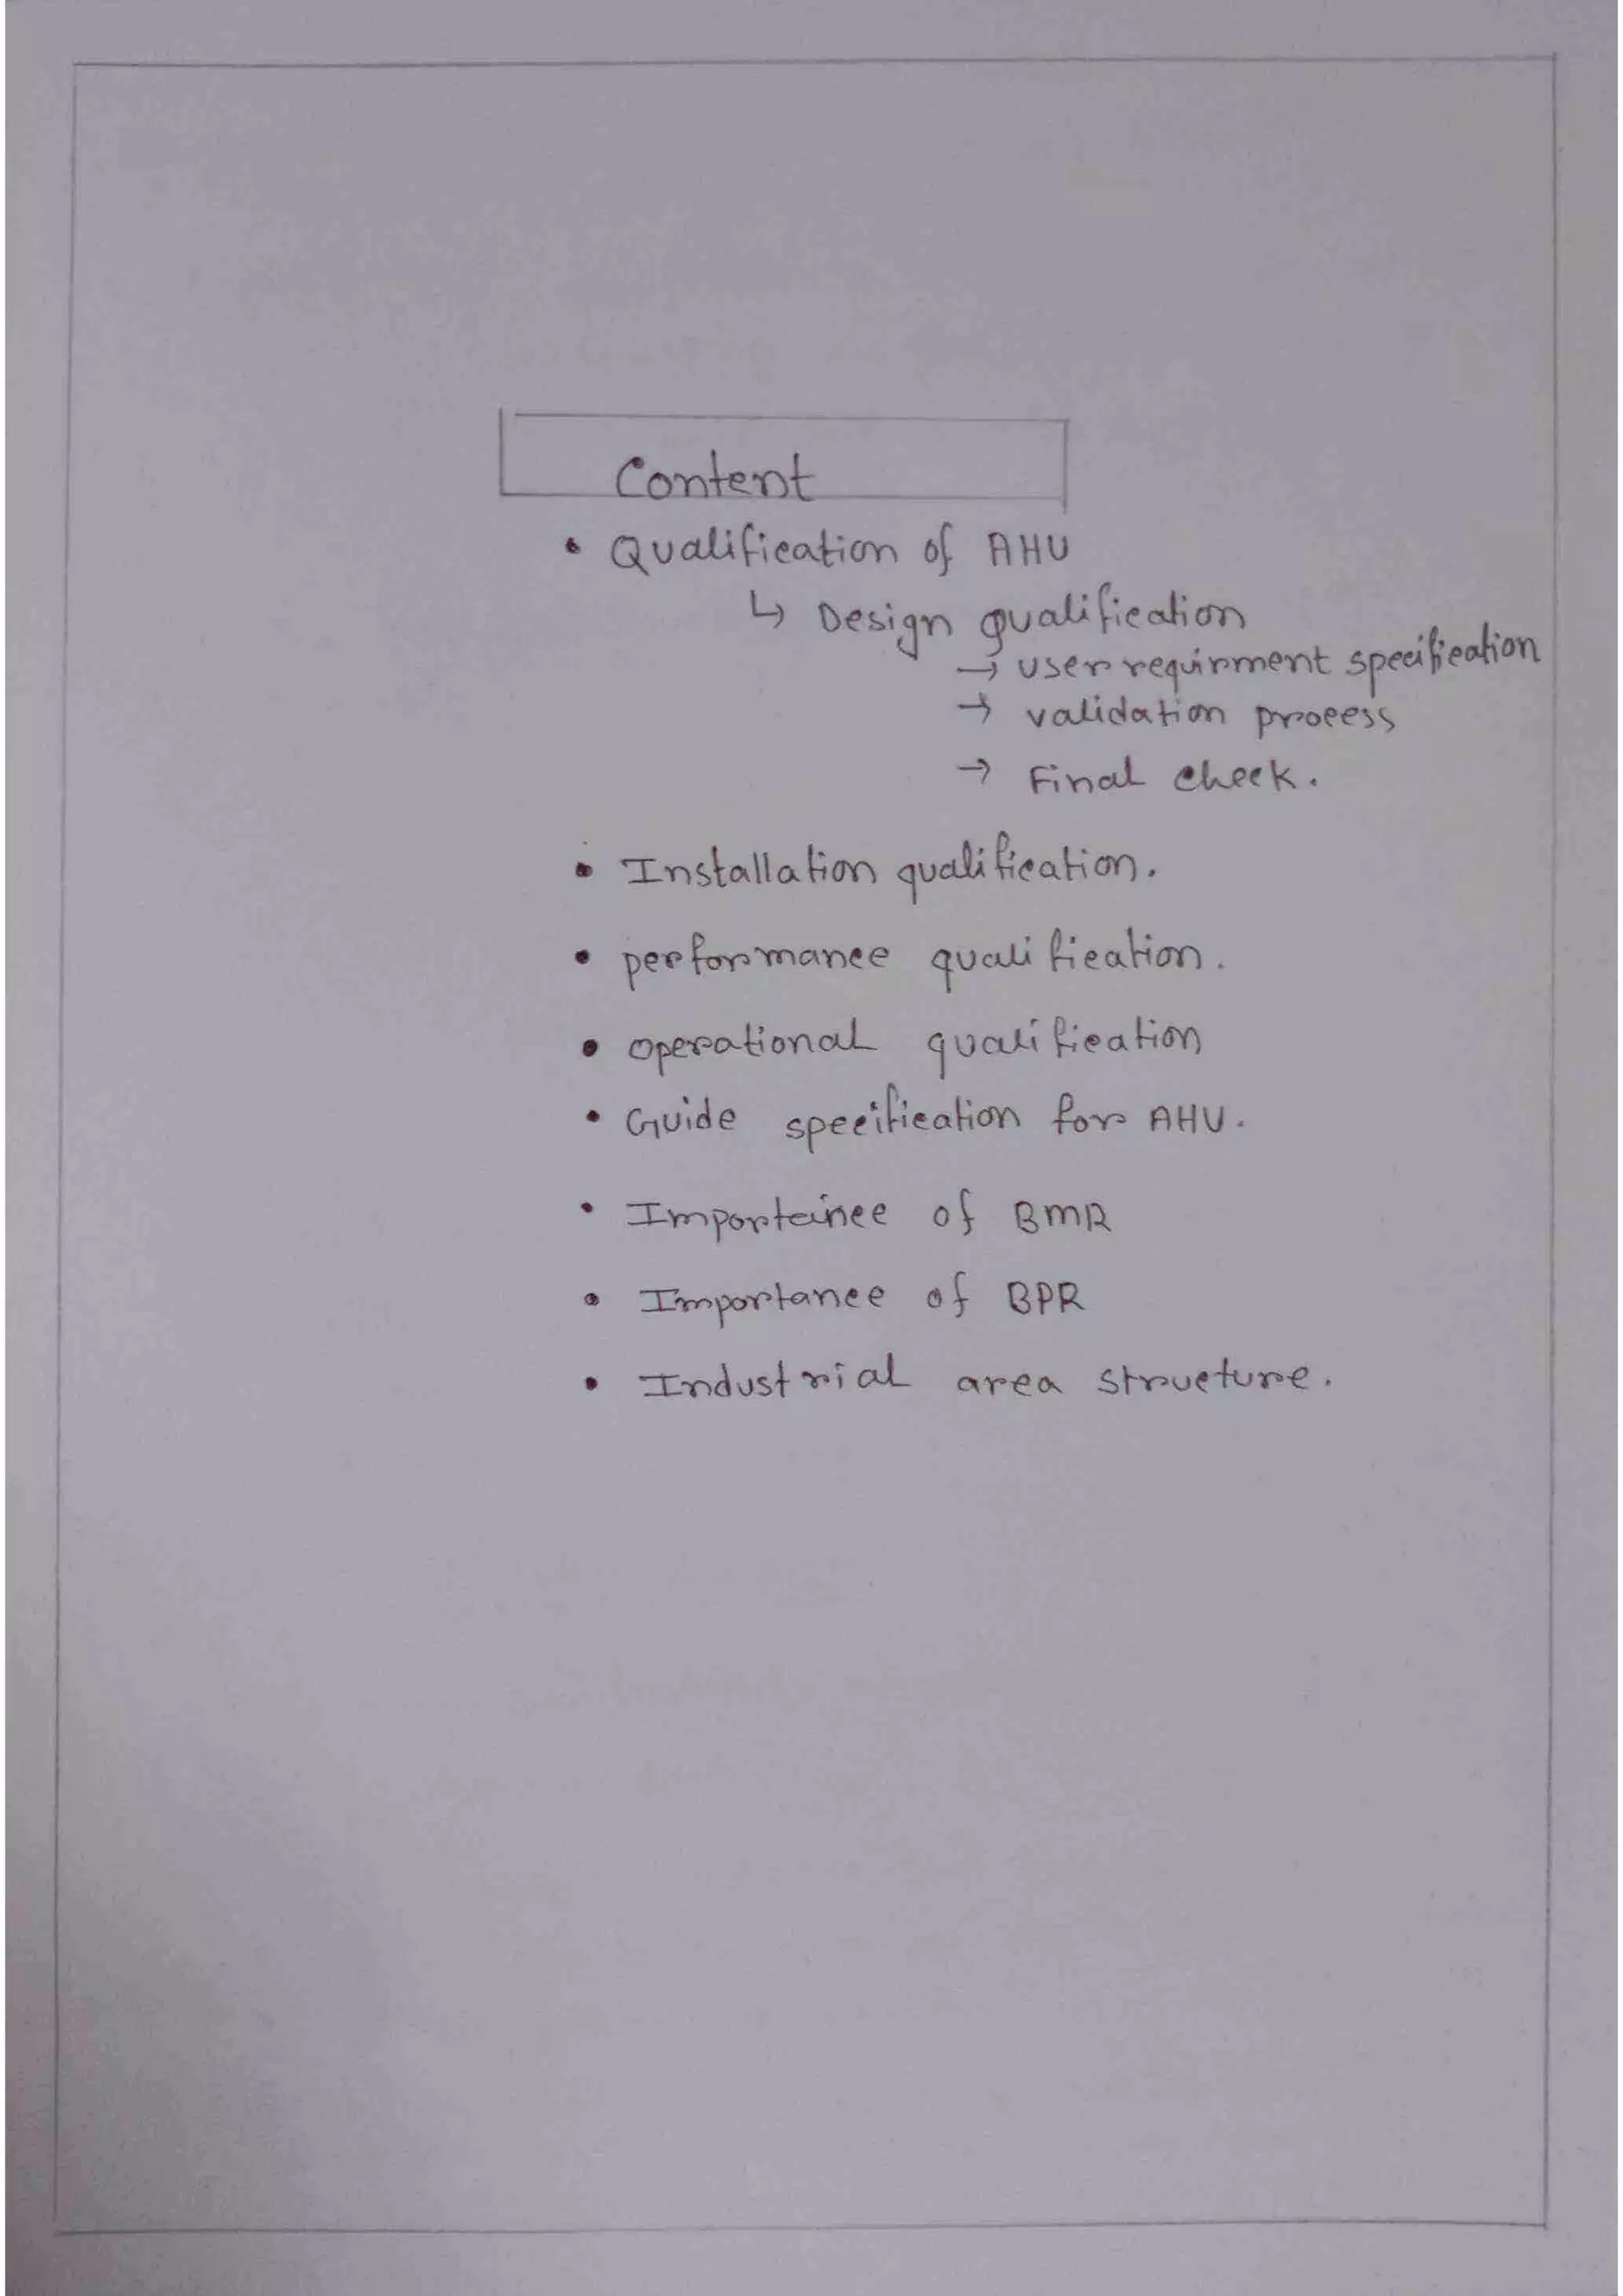 Content
• Qualification of AHU
↳ Design qualification
→ user requirment specification
→ validation process
→ Final check.
• Installation qualification.
• performance qualification.
• operational qualification
• Guide specification for AHU.
• Importance of BMR
• Importance of BPR
• Industrial area structure.